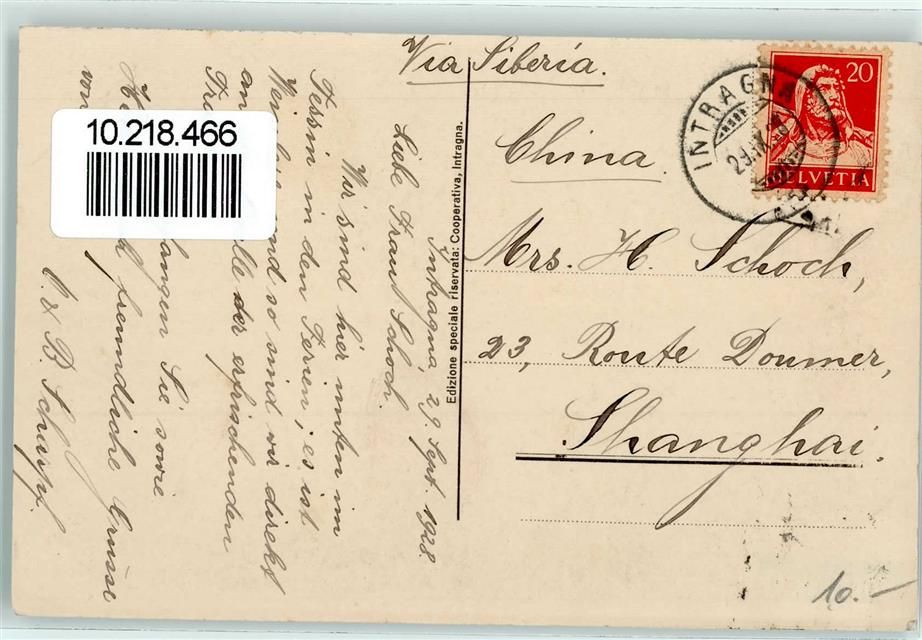 Via Siberia.
China.
Mrs. H. Schoch,
23, Route Doumer,
Shanghai.
20
HELVETIA
INTRAGNA
Edizione speciale riservata: Cooperativa, Intragna.
Intragna 29. Sept. 1928
Liebe Frau Schoch.
Wir sind hier unten im
Tessin in den Ferien; es ist
und so sind wir direkt
an der erfrischenden
Sie sowie
freundliche Grüsse
von
10.218.466
10.-